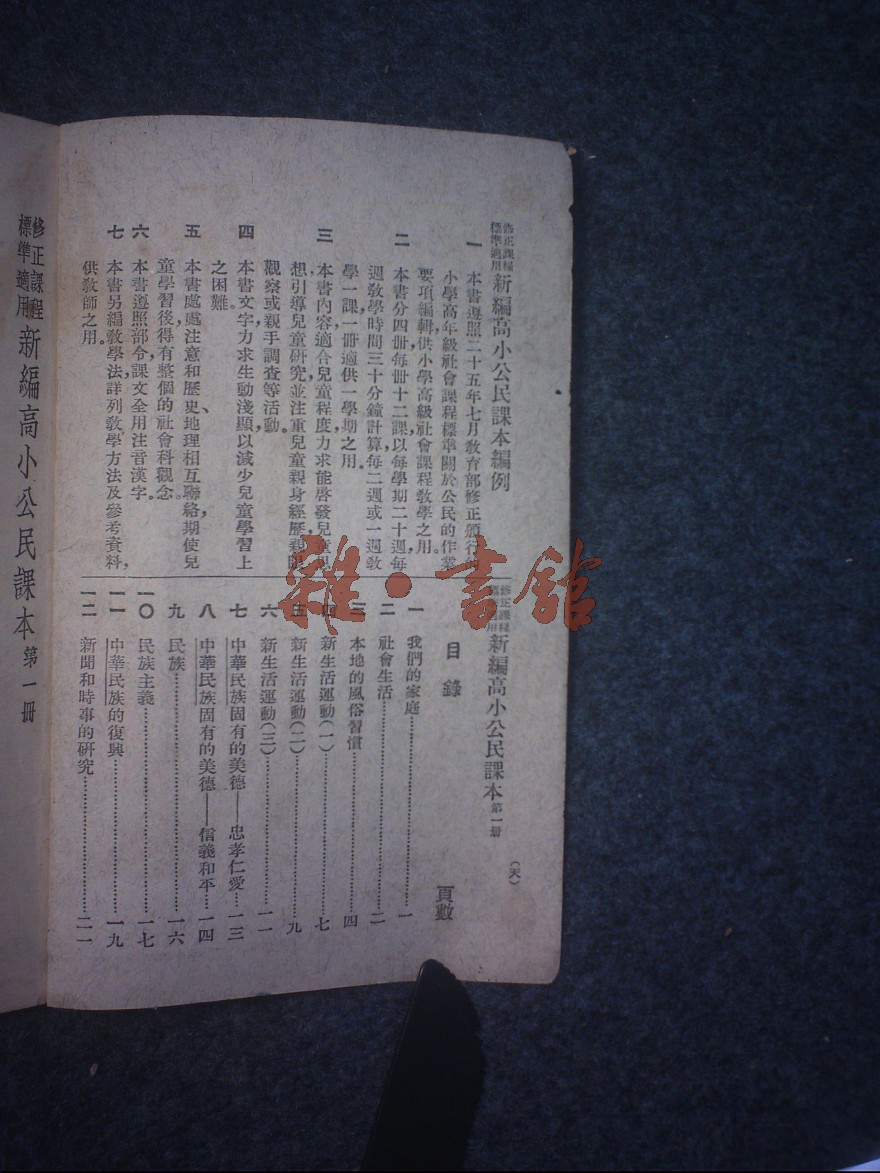 修正課程標準適用 新編高小公民課本編例
一 本書遵照二十五年七月教育部修正頒行
小學高年級社會課程標準關於公民的作業
要項編輯供小學高級社會課程教學之用。
二 本書分四冊每冊十二課以每學期二十週每
週教學時間三十分鐘計算每二週或一週教
學一課一冊適供一學期之用。
三 本書內容適合兒童程度力求能啓發兒童思
想引導兒童研究並注重兒童親身經歷親眼
觀察或親手調查等活動。
四 本書文字力求生動淺顯以減少兒童學習上
之困難。
五 本書處處注意和歷史、地理相互聯絡期使兒
童學習後得有整個的社會科觀念。
六 本書遵照部令,課文全用注音漢字。
七 本書另編教學法詳列教學方法及參考資料,
供教師之用。
修正課程標準適用 新編高小公民課本 第一冊 (天)
目錄 頁數
一 我們的家庭……一
二 社會生活……二
三 本地的風俗習慣……四
四 新生活運動(一)……七
五 新生活運動(二)……九
六 新生活運動(三)……一一
七 中華民族固有的美德——忠孝仁愛……一三
八 中華民族固有的美德——信義和平……一四
九 民族……一六
一〇 民族主義……一七
一一 中華民族的復興……一九
一二 新聞和時事的研究……二一
修正課程標準適用 新編高小公民課本 第一冊
雜·書館